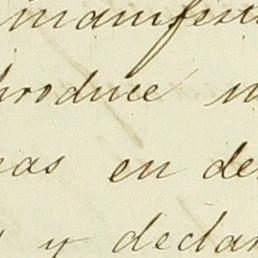 manifest
produce
as en de
y declar